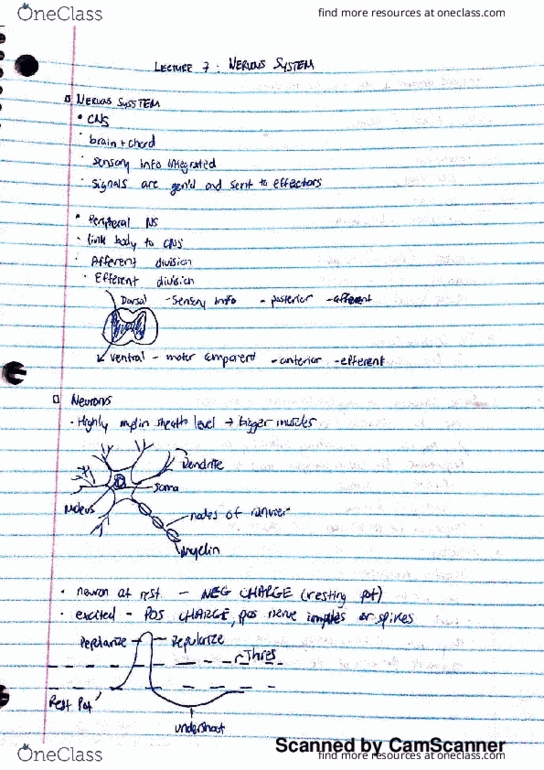 OneClass
find more resources at oneclass.com
LECTURE 7 : NERVOUS SYSTEM
NERVOUS SYSSTEM
• CNS
· brain + chord
· sensory info integrated
· signals are gen'd and sent to effectors
• Peripheral NS
· link body to CNS
· Afferent division
· Efferent division
Dorsal - Sensory info - posterior - afferent
ventral - motor component - anterior - efferent
NEURONS
· Highly mylin sheath level → bigger muscles
Dendrite
soma
Nucleus
nodes of ranvier
Myelin
· neuron at rest - NEG CHARGE (resting pot)
· excited - POS CHARGE, pos nerve impulses or spikes
Depolarize Repolarize
Thres
Rest Pot
undershoot
Scanned by CamScanner
OneClass
find more resources at oneclass.com